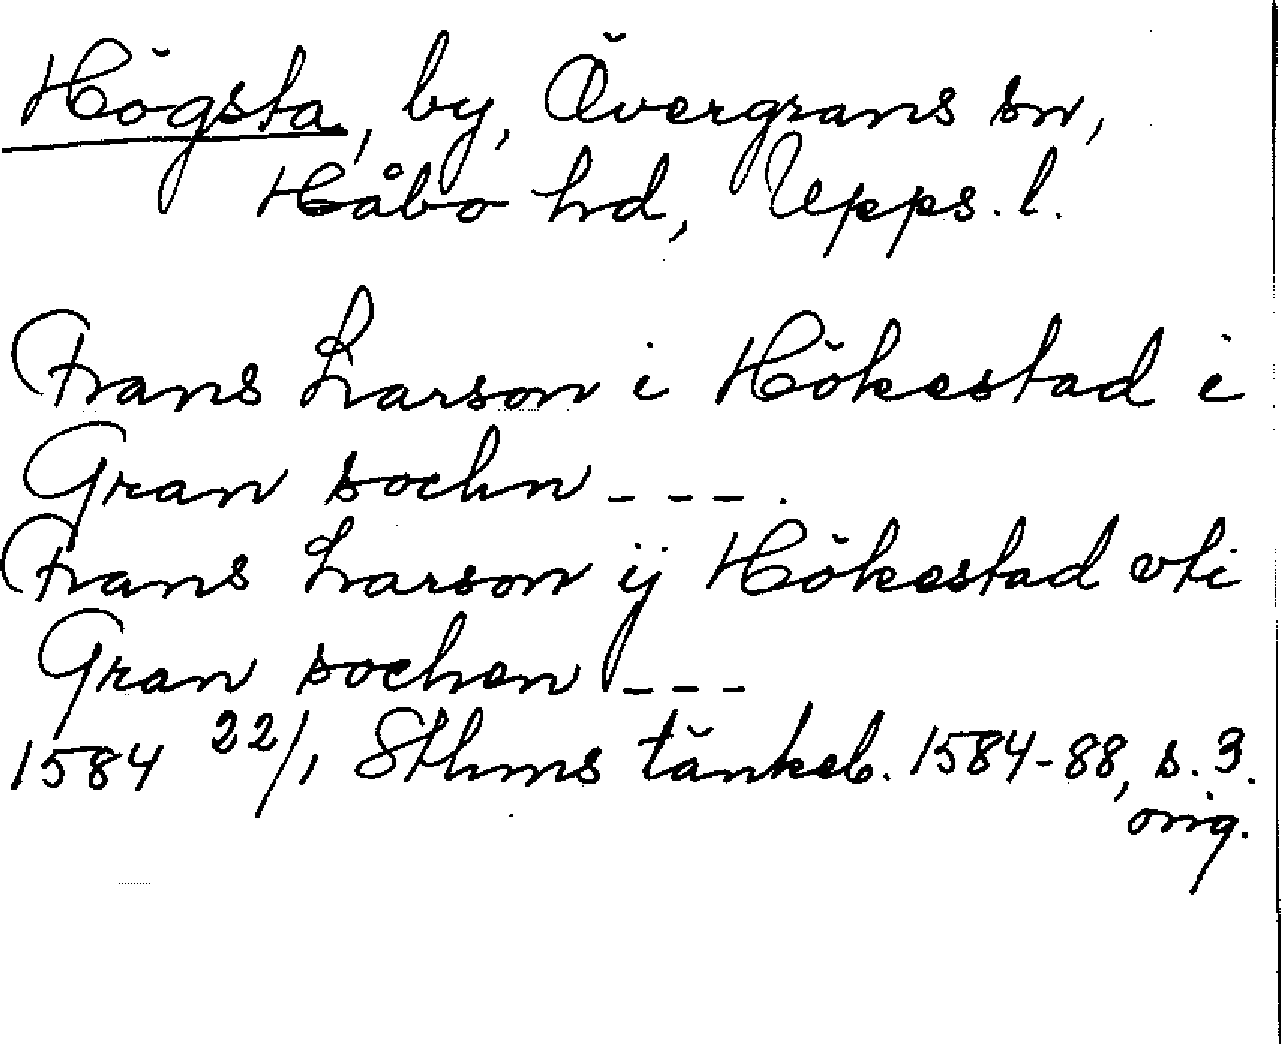 Högsta, by, Övergrans sn,
Håbo hd, Upps. l.
Frans Larson i Hökestad i
Gran sochn - - - .
Frans Larson ij Hökestad vti
Gran sochen - - -
1584 22/1 Sthms tänkeb. 1584-88, s. 3.
orig.